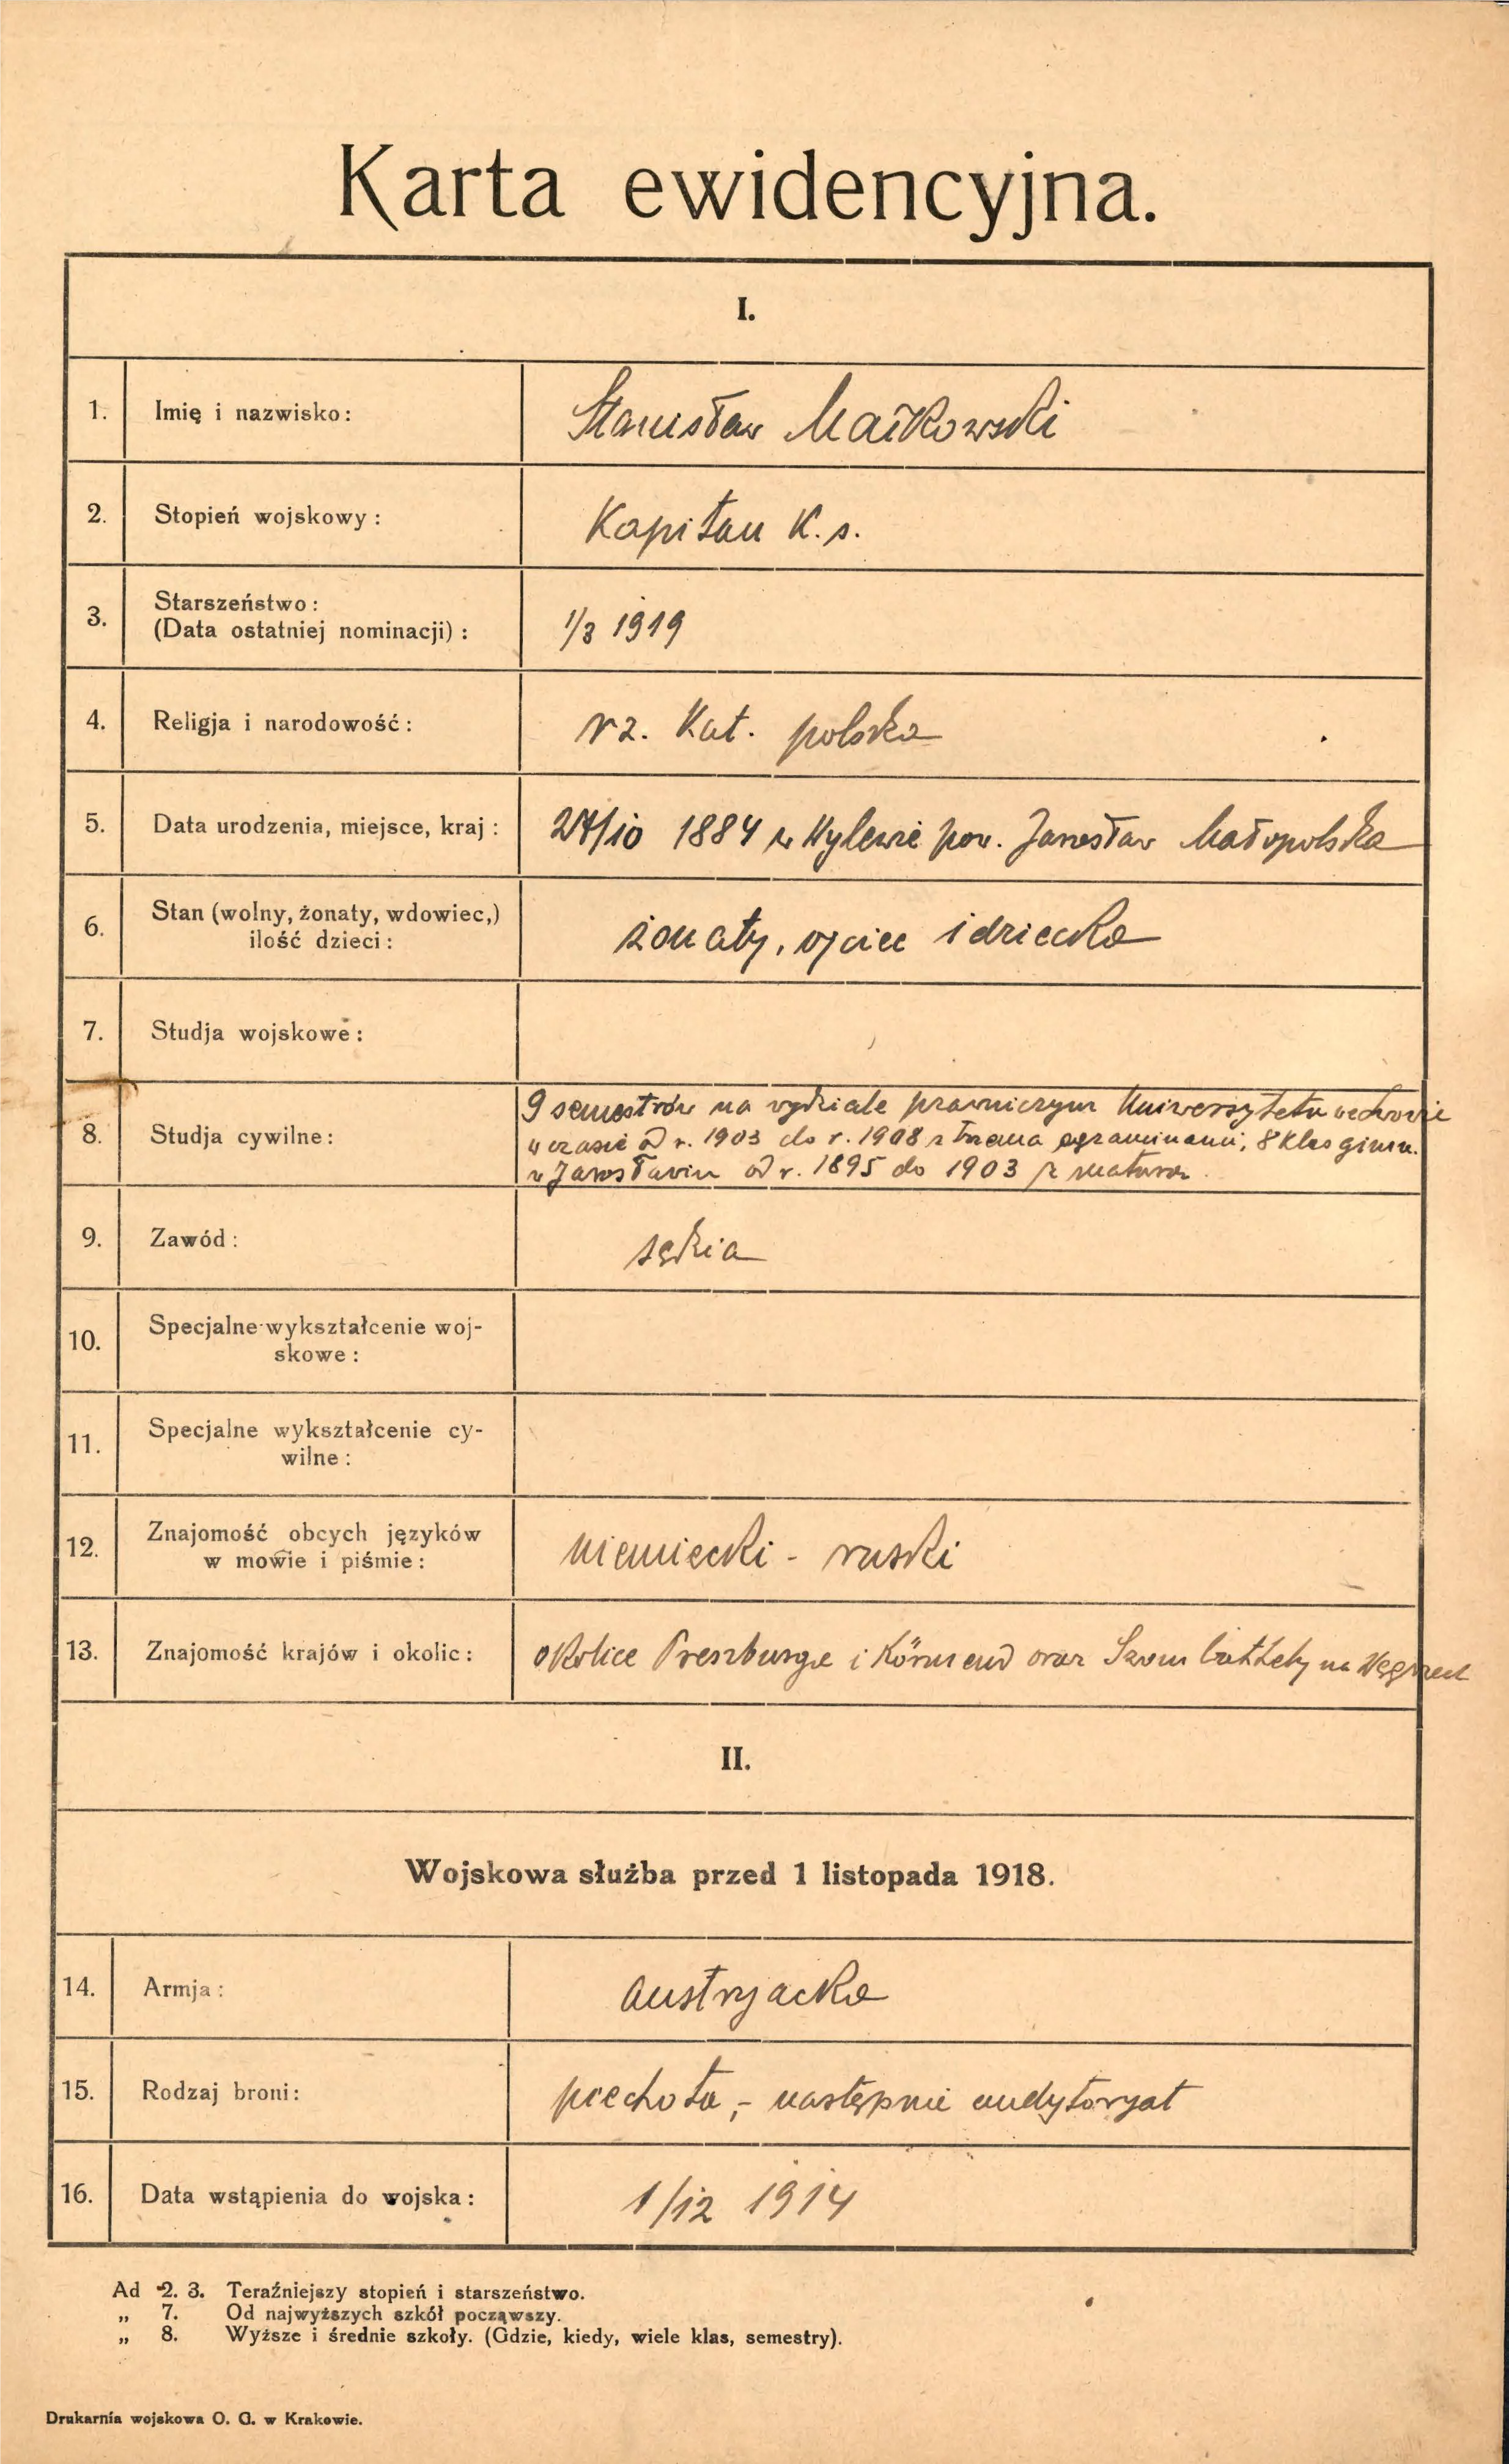 Karta ewidencyjna.
I.
1. Imię i nazwisko: Stanisław Maćkowski
2. Stopień wojskowy: Kapitan K. s.
3. Starszeństwo:
(Data ostatniej nominacji): 1/3 1919
4. Religja i narodowość: rz. Kat. polska
5. Data urodzenia, miejsce, kraj: 24/10 1884 w Wylewie pow. Jarosław Małopolska
6. Stan (wolny, żonaty, wdowiec,)
ilość dzieci: żonaty, ojciec 1 dziecka
7. Studja wojskowe:
8. Studja cywilne:
9 semestrów na wydziale prawniczym Uniwersytetu we Lwowie
w czasie od r. 1903 do r. 1908 z trzema egzaminami, 8 klas gimn.
w Jarosławiu od r. 1895 do 1903 z maturą.
9. Zawód: sędzia
10. Specjalne wykształcenie woj-
skowe:
11. Specjalne wykształcenie cy-
wilne:
12. Znajomość obcych języków
w mowie i piśmie: niemiecki - ruski
13. Znajomość krajów i okolic: okolice Preszburga i Körmend oraz Szombathely na Węgrzech
II.
Wojskowa służba przed 1 listopada 1918.
14. Armja: austryacka
15. Rodzaj broni: piechota, - następnie audytoryat
16. Data wstąpienia do wojska: 1/12 1914
Ad 2. 3. Teraźniejszy stopień i starszeństwo.
„ 7. Od najwyższych szkół począwszy.
„ 8. Wyższe i średnie szkoły. (Gdzie, kiedy, wiele klas, semestry).
Drukarnia wojskowa O. G. w Krakowie.